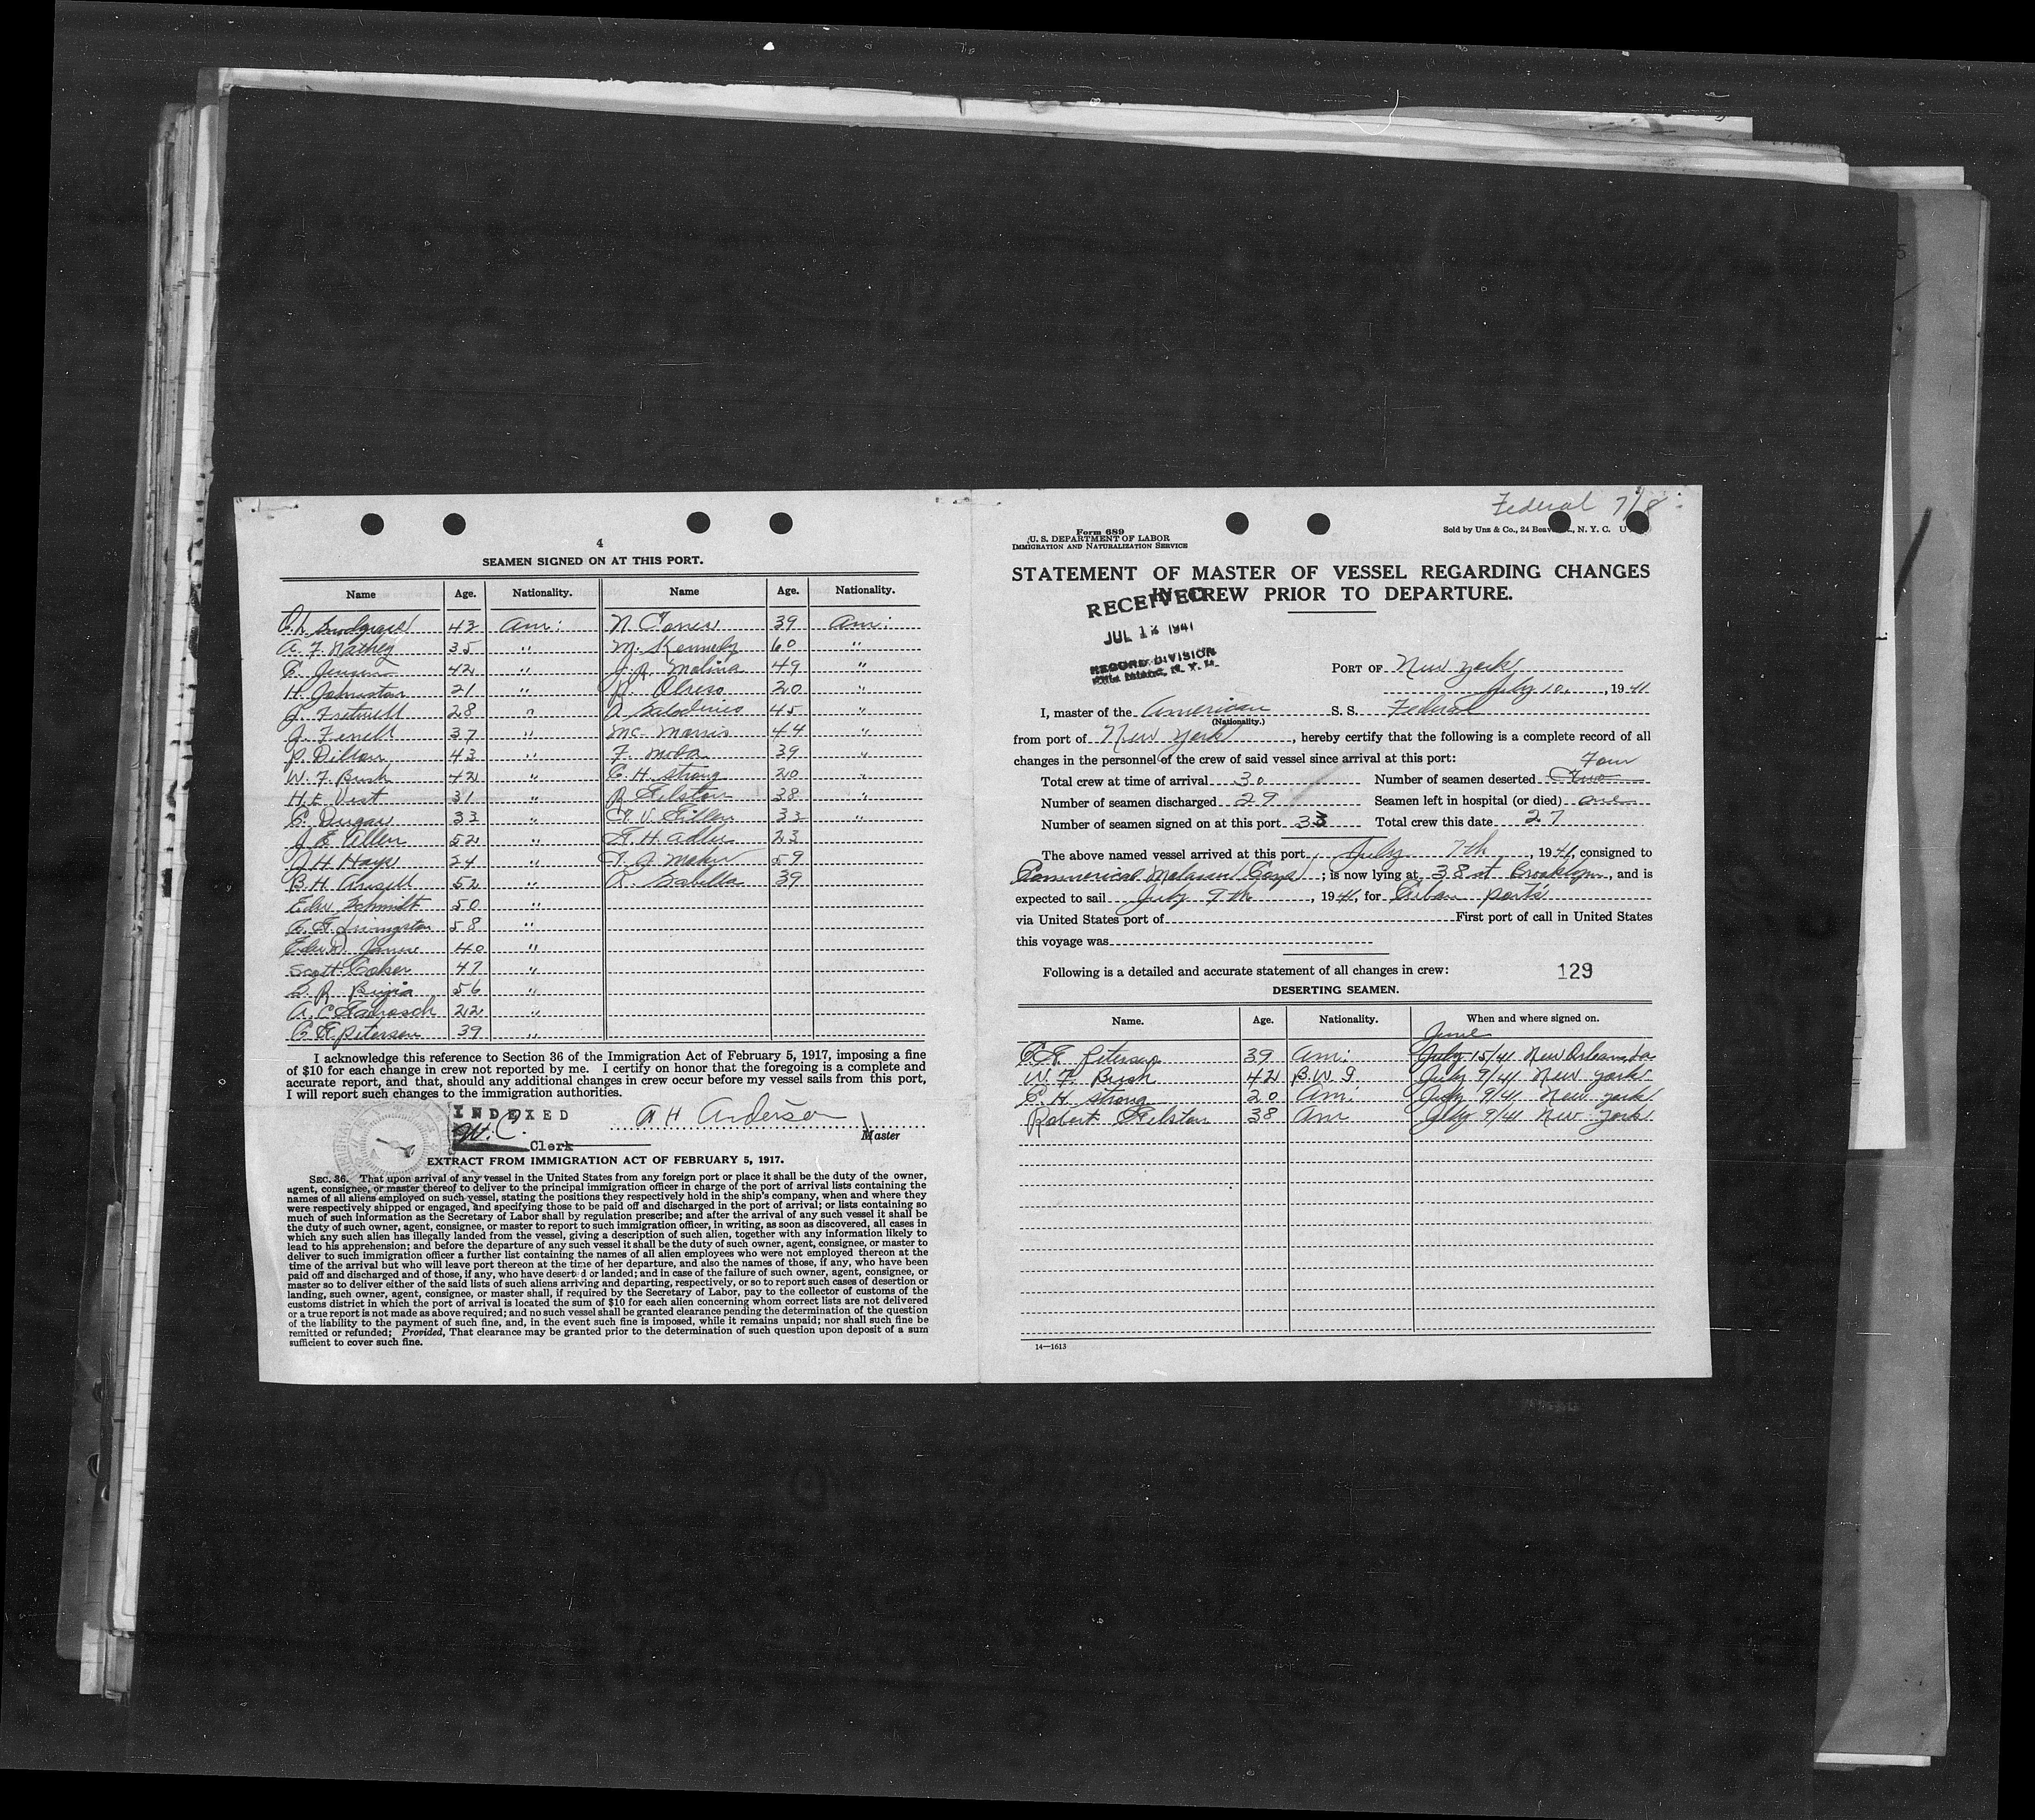 4
SEAMEN SIGNED ON AT THIS PORT.
Name Age. Nationality. Name Age. Nationality.
43 Am: N. 39 Am:
A. F. Mathey 35 " M. Kennedy 60 "
C. Jensen 42 " J. R. Molina 49 "
H. Johnston 21 " 20 "
J. 28 " A. 45 "
J. Ferrell 37 " Mc. Morris 44 "
P. Dillon 43 " F. Mota 39 "
W. F. Bush 42 " C. H. Strong 20 "
H. E. Vest 31 " R. 38 "
C. Dugan 33 " 33 "
J. E. Allen 52 " H. Adler 23
J. H. Hays 24 " J. 59
B. H. 52 " Sabella 39
Edw Schmidt 50 "
Livingston 58 "
40 "
Scott 47 "
56 "
A. C. 22 "
C. Petersen 39 "
I acknowledge this reference to Section 36 of the Immigration Act of February 5, 1917, imposing a fine
of $10 for each change in crew not reported by me. I certify on honor that the foregoing is a complete and
accurate report, and that, should any additional changes in crew occur before my vessel sails from this port,
I will report such changes to the immigration authorities.
INDEXED
W. C. A H Anderson
Clerk Master
EXTRACT FROM IMMIGRATION ACT OF FEBRUARY 5, 1917.
SEC. 36. That upon arrival of any vessel in the United States from any foreign port or place it shall be the duty of the owner,
agent, consignee, or master thereof to deliver to the principal immigration officer in charge of the port of arrival lists containing the
names of all aliens employed on such vessel, stating the positions they respectively hold in the ship's company, when and where they
were respectively shipped or engaged, and specifying those to be paid off and discharged in the port of arrival; or lists containing so
much of such information as the Secretary of Labor shall by regulation prescribe; and after the arrival of any such vessel it shall be
the duty of such owner, agent, consignee, or master to report to such immigration officer, in writing, as soon as discovered, all cases in
which any such alien has illegally landed from the vessel, giving a description of such alien, together with any information likely to
lead to his apprehension; and before the departure of any such vessel it shall be the duty of such owner, agent, consignee, or master to
deliver to such immigration officer a further list containing the names of all alien employees who were not employed thereon at the
time of the arrival but who will leave port thereon at the time of her departure, and also the names of those, if any, who have been
paid off and discharged and of those, if any, who have deserted or landed; and in case of the failure of such owner, agent, consignee, or
master so to deliver either of the said lists of such aliens arriving and departing, respectively, or so to report such cases of desertion or
landing, such owner, agent, consignee, or master shall, if required by the Secretary of Labor, pay to the collector of customs of the
customs district in which the port of arrival is located the sum of $10 for each alien concerning whom correct lists are not delivered
or a true report is not made as above required; and no such vessel shall be granted clearance pending the determination of the question
of the liability to the payment of such fine, and, in the event such fine is imposed, while it remains unpaid; nor shall such fine be
remitted or refunded; Provided, That clearance may be granted prior to the determination of such question upon deposit of a sum
sufficient to cover such fine.
Federal 7/8
Form 689
U. S. DEPARTMENT OF LABOR
IMMIGRATION AND NATURALIZATION SERVICE
Sold by Unz & Co., 24 N. Y. C.
STATEMENT OF MASTER OF VESSEL REGARDING CHANGES
IN CREW PRIOR TO DEPARTURE.
RECEIVED
JUL 1941
RECORD DIVISION
PORT OF New York
July 10, 1941
I, master of the American S. S. Federal
(Nationality.)
from port of New York, hereby certify that the following is a complete record of all
changes in the personnel of the crew of said vessel since arrival at this port:
Four
Total crew at time of arrival 30 Number of seamen deserted
Number of seamen discharged 29 Seamen left in hospital (or died) one
Number of seamen signed on at this port 33 Total crew this date 27
The above named vessel arrived at this port July 7th, 1941, consigned to
Commerical Molasses ; is now lying at 38 st Brooklyn, and is
expected to sail July 9th, 1941, for Cuban ports
via United States port of First port of call in United States
this voyage was
Following is a detailed and accurate statement of all changes in crew: 129
DESERTING SEAMEN.
Name. Age. Nationality. When and where signed on.
June
Petersen 39 Am: July 15/41 New Orleans La
W. F. Bush 42 B.W.I July 9/41 New York
C. H Strong 20 Am. July 9/41 New York
Robert 38 Am July 9/41 New York
14—1613